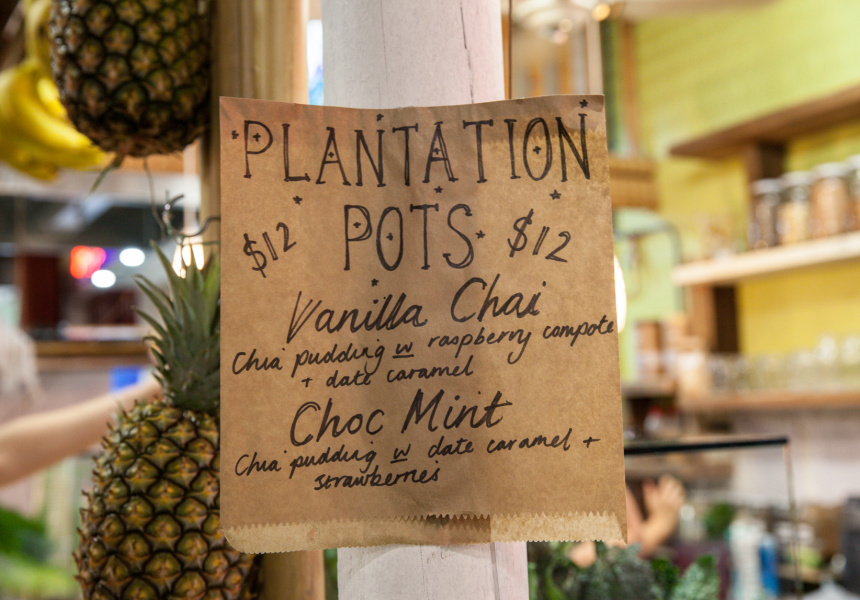 PLANTATION
$12 POTS $12
Vanilla Chai
Chia pudding w raspberry compote
+ date caramel
Choc Mint
Chia pudding w date caramel +
strawberries